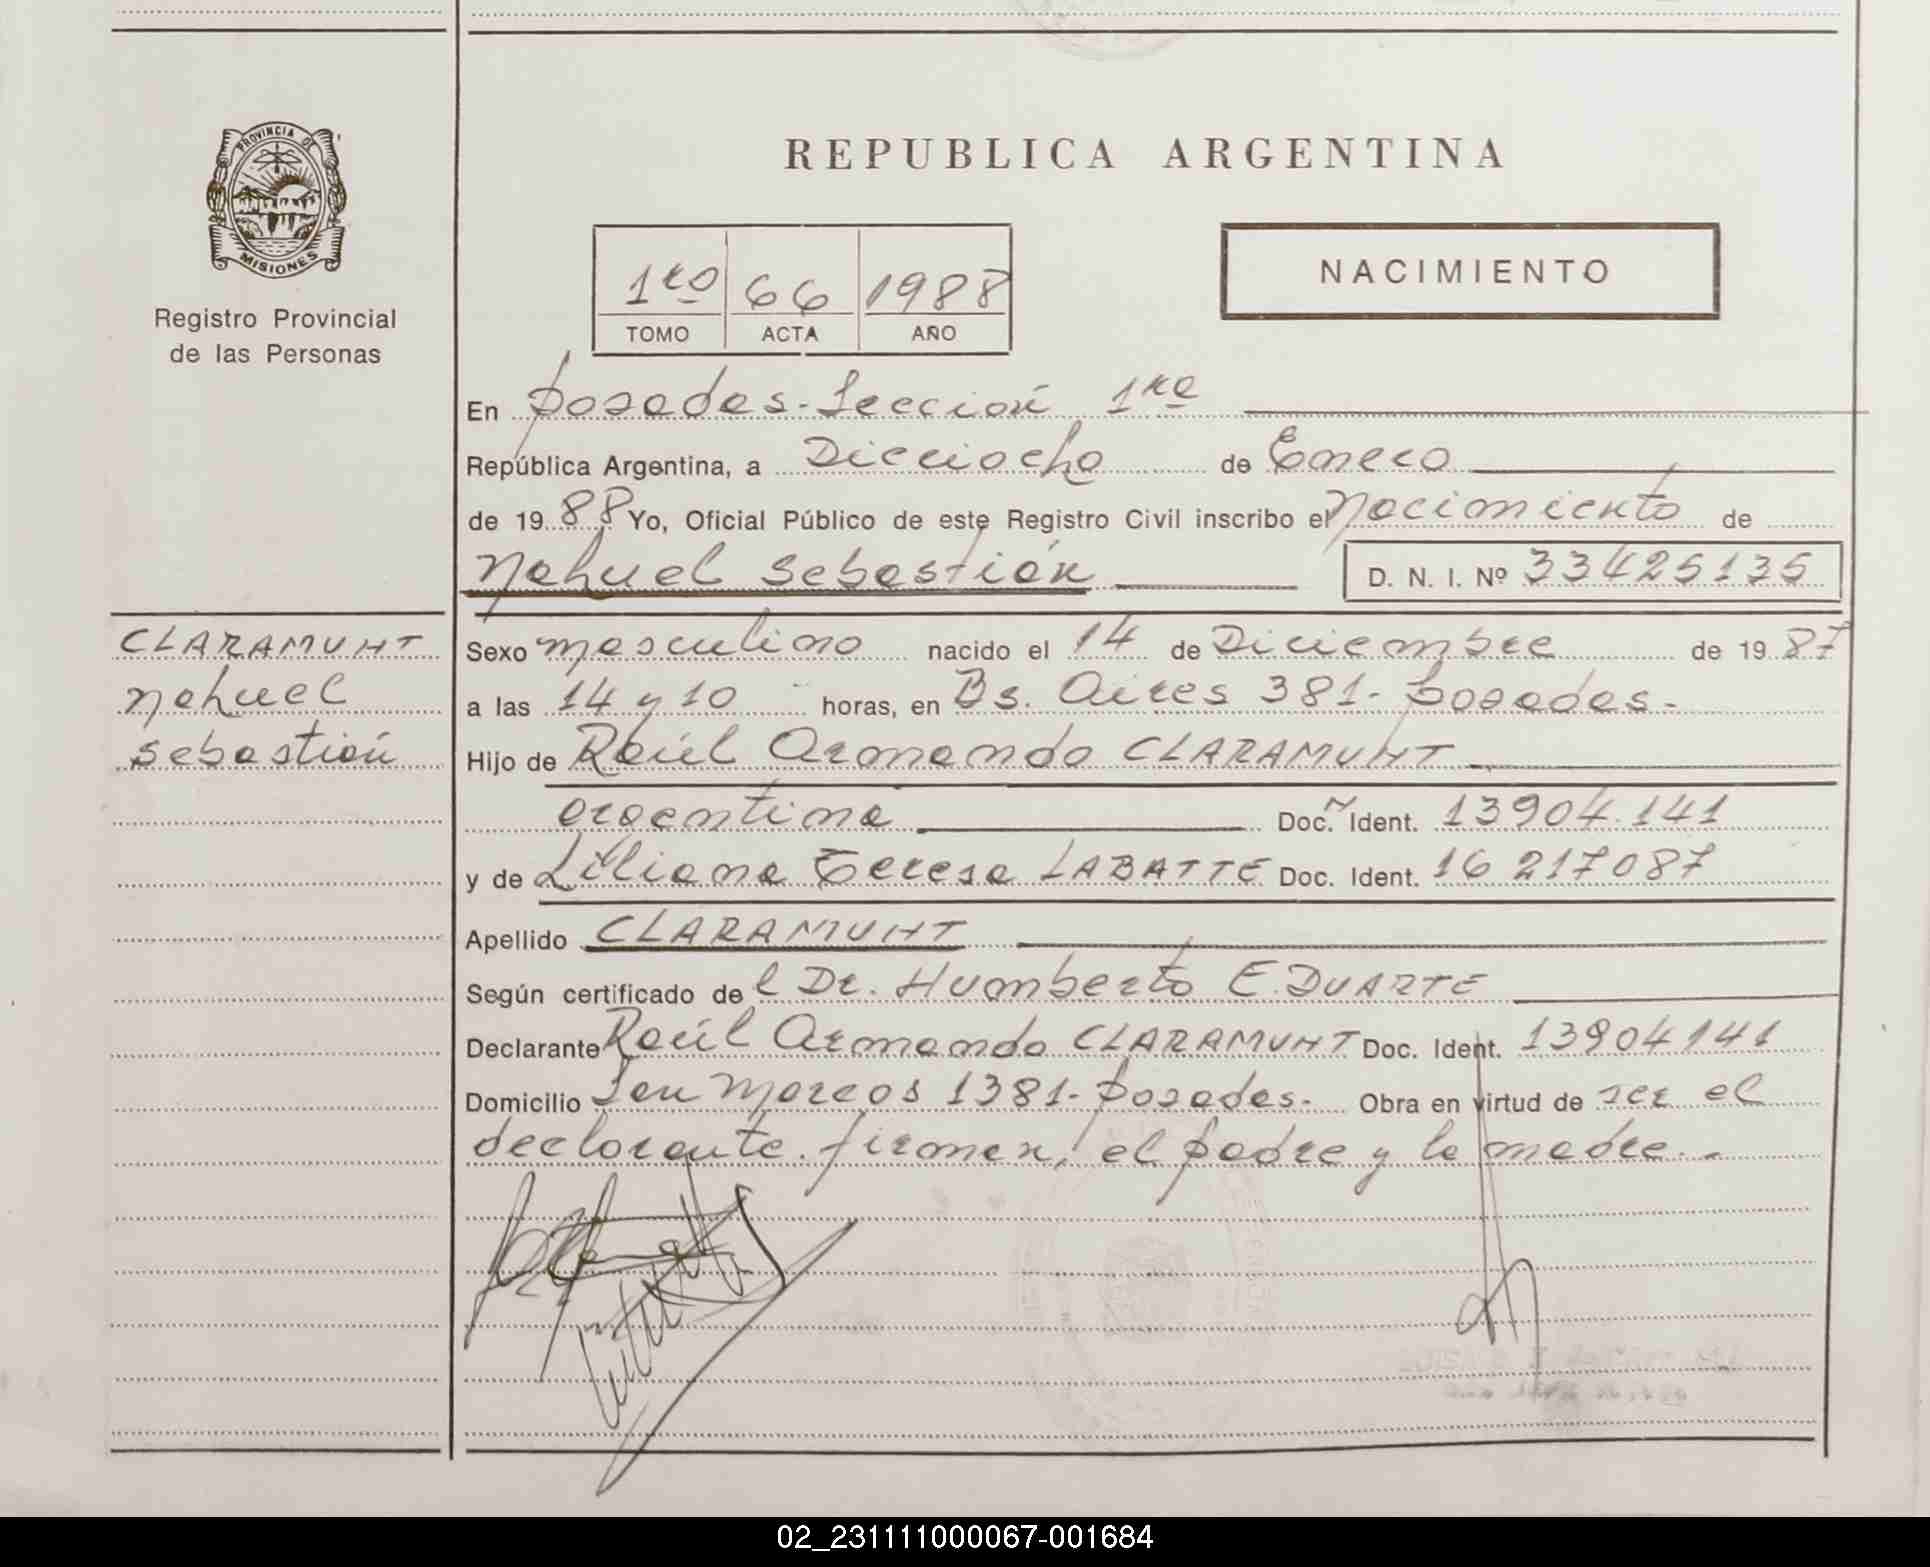 REPUBLICA ARGENTINA
PROVINCIA DE
MISIONES
Registro Provincial
de las Personas
1ro 66 1988
TOMO ACTA AÑO
NACIMIENTO
En Posadas-Sección 1ra
República Argentina, a Dieciocho de Enero
de 1988 Yo, Oficial Público de este Registro Civil inscribo el Nacimiento de
Nahuel Sebastián D. N. I. Nº 33425135
CLARAMUNT
Nahuel
Sebastián
Sexo masculino nacido el 14 de Diciembre de 1987
a las 14 y 10 horas, en Bs. Aires 381-Posadas-
Hijo de Raúl Armando CLARAMUNT
argentina Doc. Ident. 13904.141
y de Liliana Teresa LABATTE Doc. Ident. 16 217087
Apellido CLARAMUNT
Según certificado del Dr. Humberto E. DUARTE
Declarante Raúl Armando CLARAMUNT Doc. Ident. 13904141
Domicilio San Marcos 1381-Posadas- Obra en virtud de ser el
declarante. firman, el padre y la madre.-
02_231111000067-001684